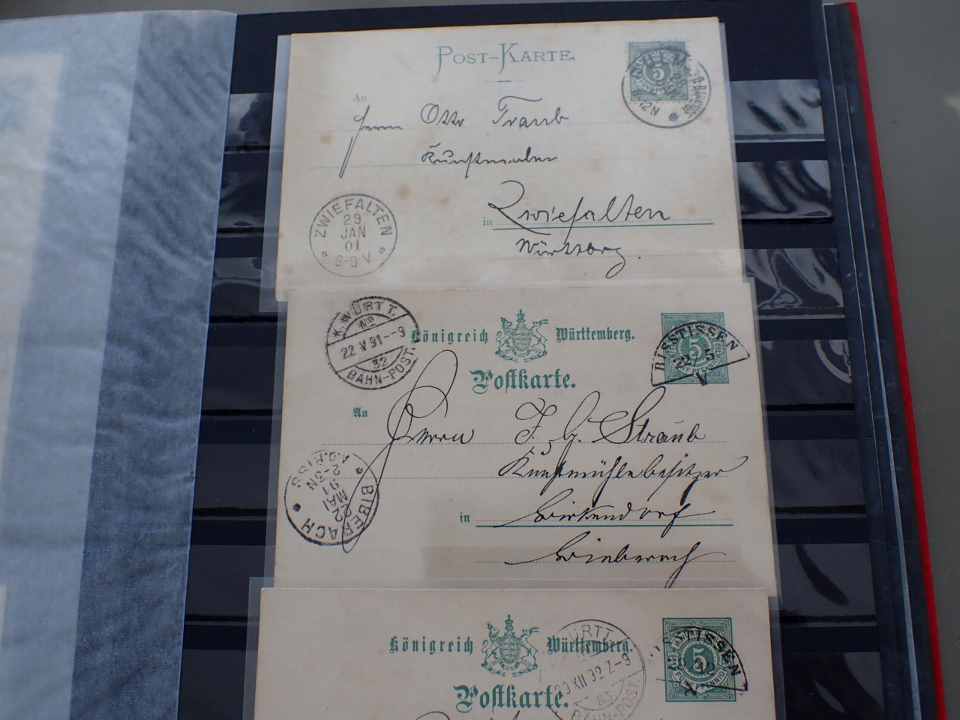 POST-KARTE.
5
12N
An
Herrn Otto Traub
Kunstmaler
in Zwiefalten
Württbg.
ZWIEFALTEN
29
JAN
01
8-9 V
K. WÜRTT.
No
22 V 91 - - 3
32
BAHN-POST.
Königreich Württemberg.
Postkarte.
5
RISSTISSEN
22/5
An
Herrn J. G. Straub
Kunstmühlebesitzer
in Birkendorf
BIBERACH
A.D. RISS
22
MAI
91
2-3N
Königreich Württemberg.
Postkarte.
WÜRTT.
XII 92 7-9
BAHN-POST.
5
RISSTISSEN